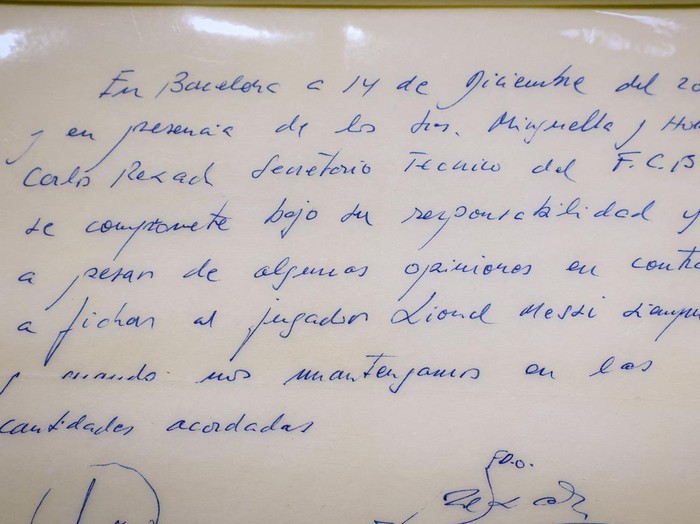 En Barcelona a 14 de Diciembre del 20
y en presencia de los Srs. Minguella y Hor
Carlos Rexach Secretario Tecnico del F.C.B
se compromete bajo su responsabilidad y
a pesar de algunas opiniones en contra
a fichar al jugador Lionel Messi siempre
y cuando nos mantengamos en las
cantidades acordadas
FDO.
Rexach